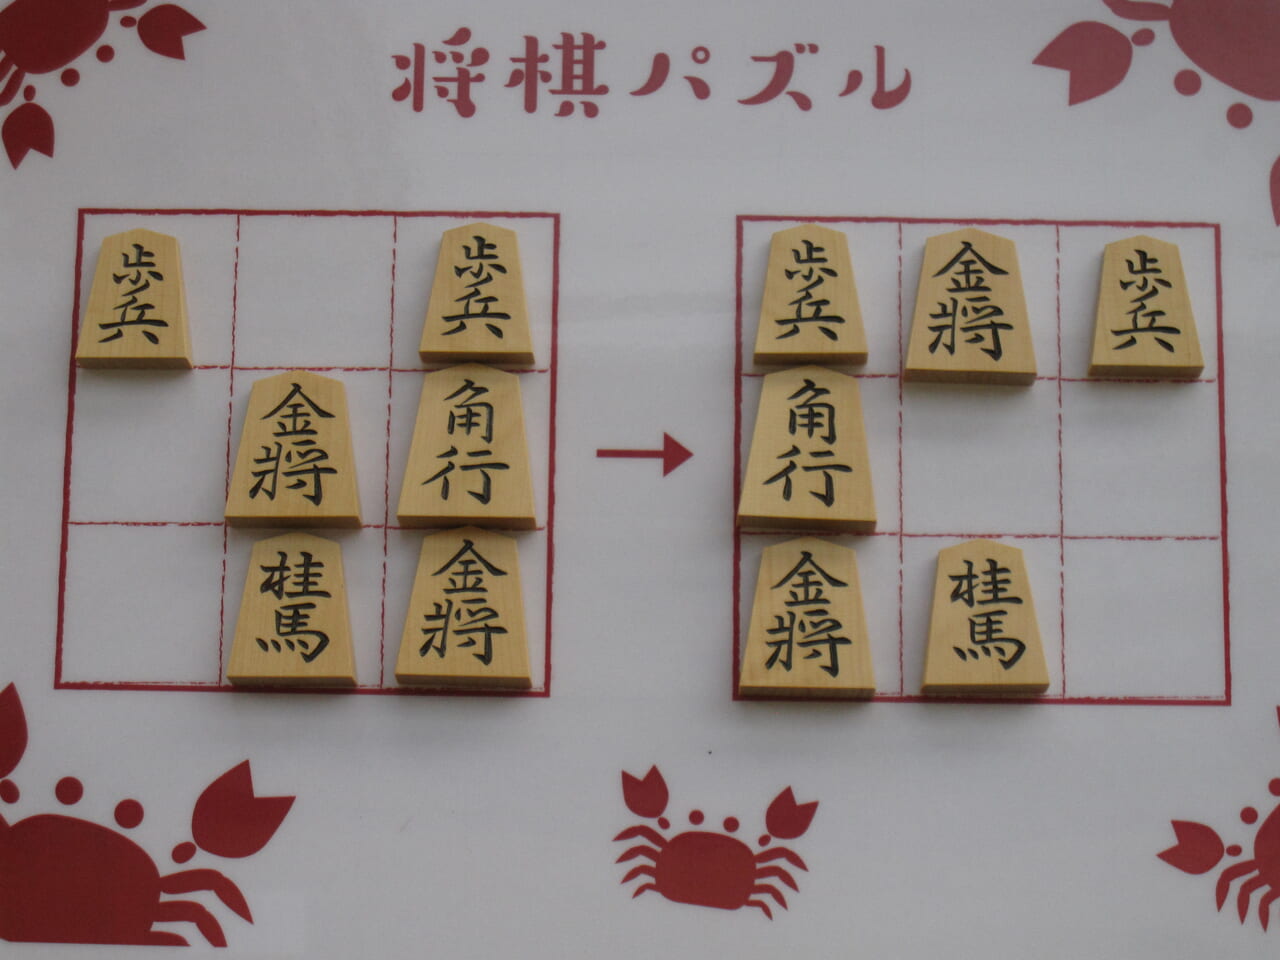 将棋パズル
歩兵 歩兵 歩兵 金将 歩兵
金将 角行 角行
桂馬 金将 金将 桂馬